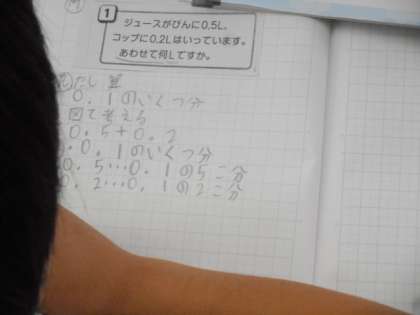 1
ジュースがびんに0.5L、
コップに0.2Lはいっています。
あわせて何Lですか。
たし算
0.1のいくつ分
図で考える
0.5+0.2
0.1のいくつ分
0.5…0.1の5こ分
0.2…0.1の2こ分